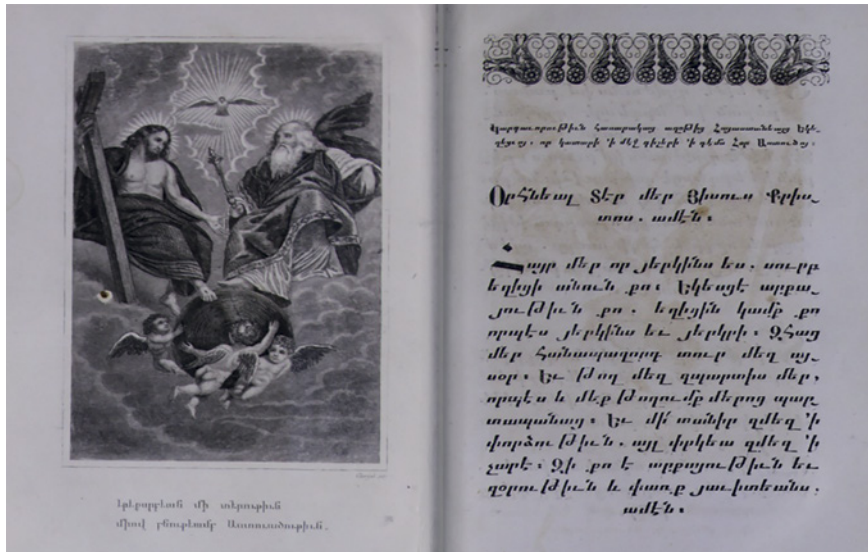 մի տէրութիւն
միով բնութեամբ Աստուածութիւն.
Կարգաւորութիւն հասարակաց աղօթից Հայաստանեայց Եկե֊
ղեցւոյ. որ կատարի ՚ի մէջ գիշերի ՚ի դէմս Հօր Աստուծոյ։
Օրհնեալ Տէր մեր Յիսուս Քրիս֊
տոս. ամէն։
Հայր մեր որ յերկինս ես. սուրբ
եղիցի անուն քո։ Եկեսցէ արքա֊
յութիւն քո. եղիցին կամք քո
որպէս յերկինս եւ յերկրի։ Զհաց
մեր հանապազորդ տուր մեզ այ֊
սօր։ Եւ թող մեզ զպարտիս մեր,
որպէս և մեք թողումք մերոց պար֊
տապանաց։ Եւ մի՛ տանիր զմեզ ՚ի
փորձութիւն. այլ փրկեա զմեզ ՚ի
չարէ։ Զի քո է արքայութիւն եւ
զօրութիւն և փառք յաւիտեանս.
ամէն։